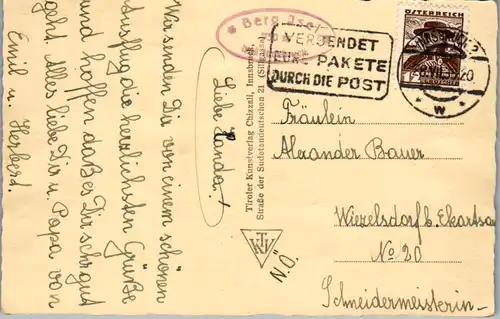 Liebe Handa!
Wir senden Dir von einem schönen
Ausflug die herzlichsten Grüße
und hoffen daß es Dir sehr gut
geht. Alles liebe Dir u. Papa von
Emil u. Herbert.
Tiroler Kunstverlag Chizzali, Innsbruck,
Straße der Sudetendeutschen 21
TKV
* Berg Isel
VERSENDET
EURE PAKETE
DURCH DIE POST
ÖSTERREICH
INNSBRUCK 2
20
W
Fräulein
Alexander Bauer
Wiezelsdorf b. Ekartsa
No 20
N.Ö.
Schneidermeisterin-